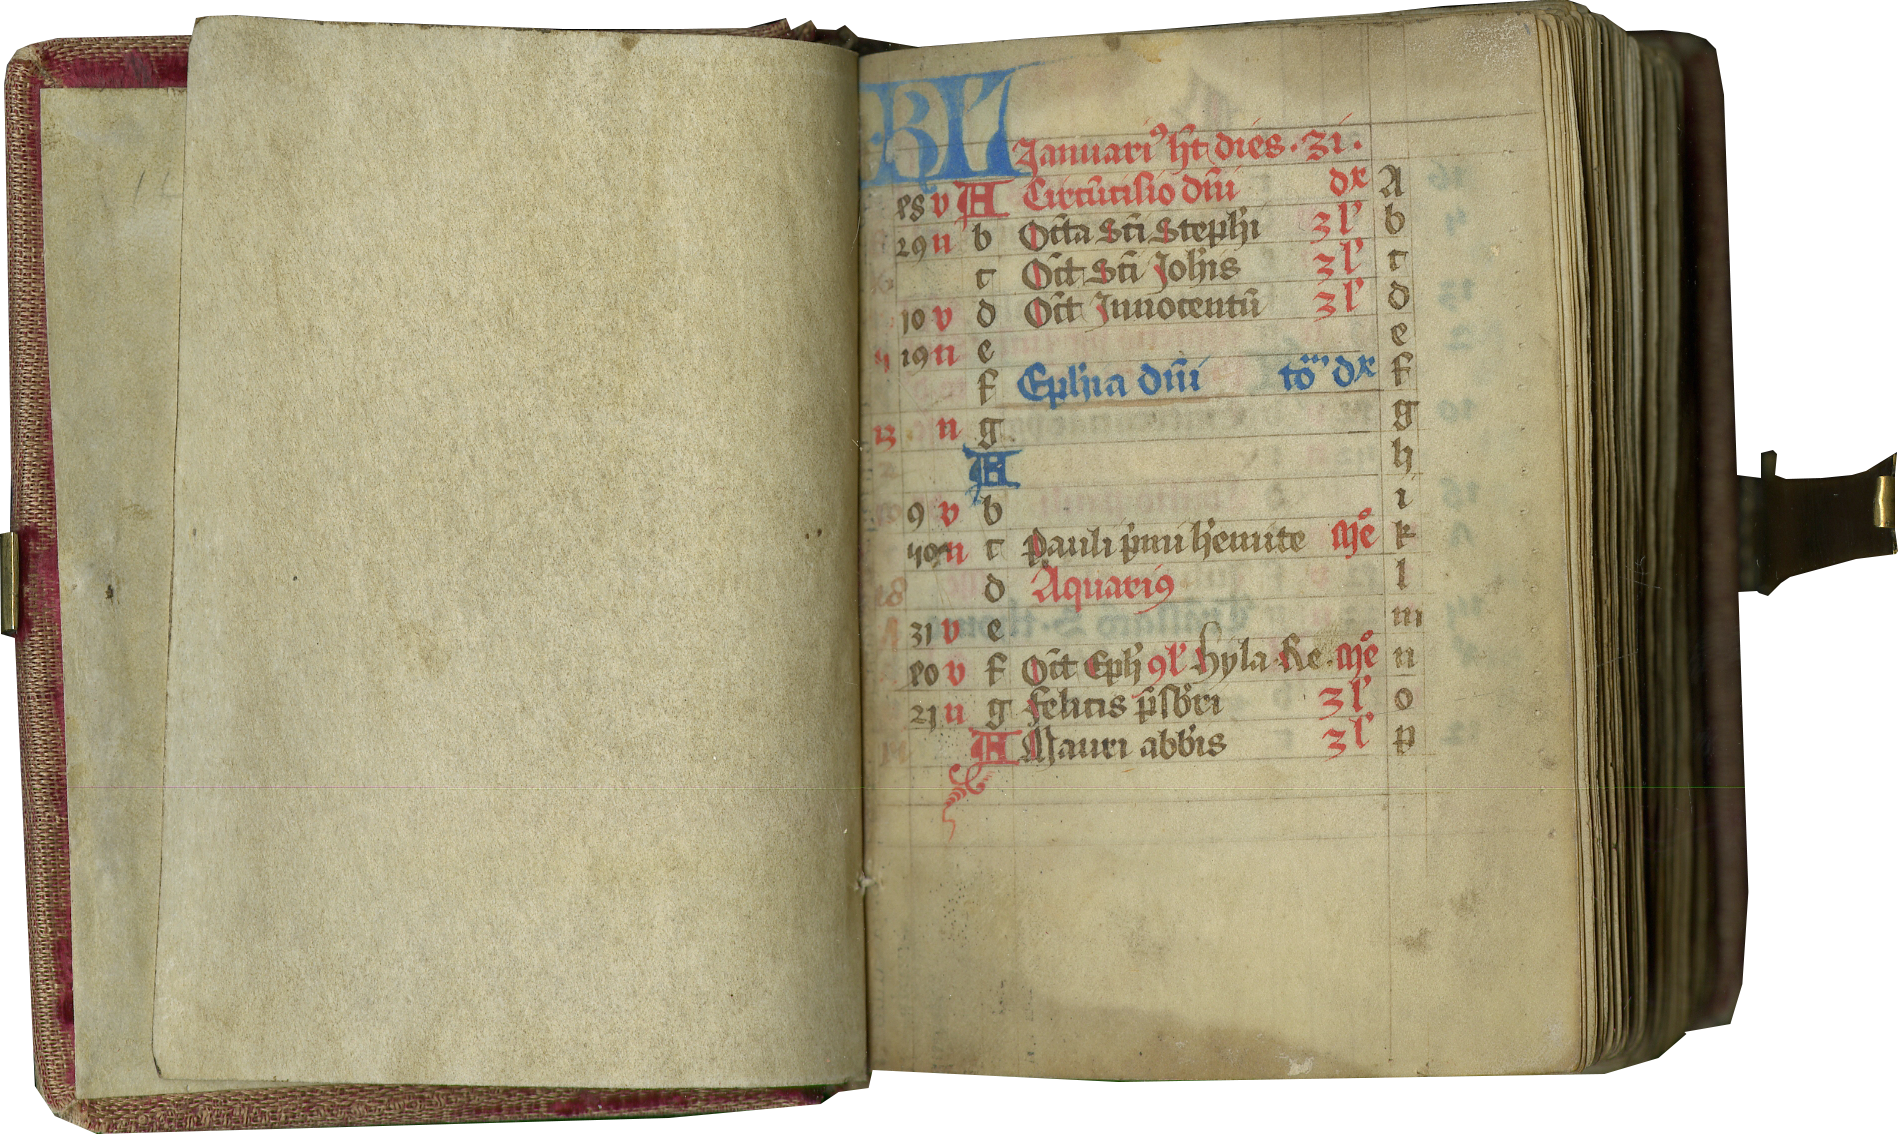 KL
Januari⁹ hꝫt dies . 31 .
v A Circu̅cisio dn̅i dx A
29 n b Octa sc̅i Steph̅i 3 l' b
c Oct̅ sc̅i Joh̅is 3 l' c
10 v d Oct̅ Innocentu̅ 3 l' d
19 n e e
f Eph̅ia dn̅i to̅ dx f
13 n g g
A h
9 v b i
n c Pauli p̅mi h̅emite Me̅ k
d Aquari⁹ l
31 v e m
v f Oct̅ Eph̅ 9l' hyla Re . Me̅ n
21 n g Felicis p̅sbri 3 l' o
A Mauri abb̅is 3 l' p